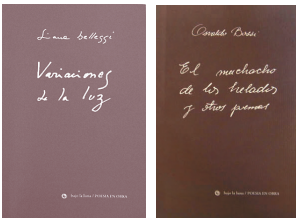 Diana Bellessi
Variaciones
de la luz
bajo la luna / POESÍA EN OBRA
Osvaldo Bossi
El muchacho
de los helados
y otros poemas
bajo la luna / POESÍA EN OBRA